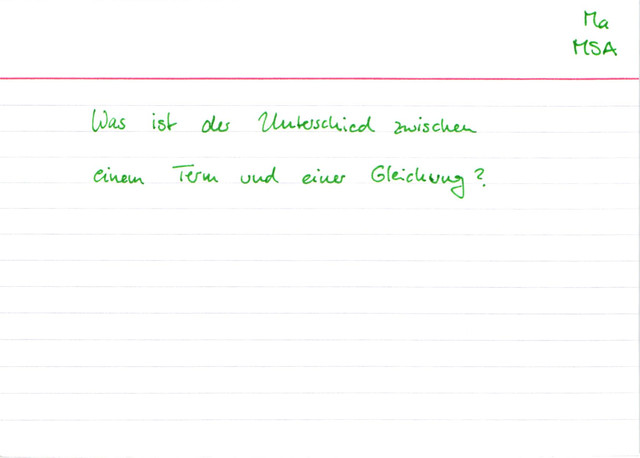 Ma
MSA
Was ist der Unterschied zwischen
einem Term und einer Gleichung?